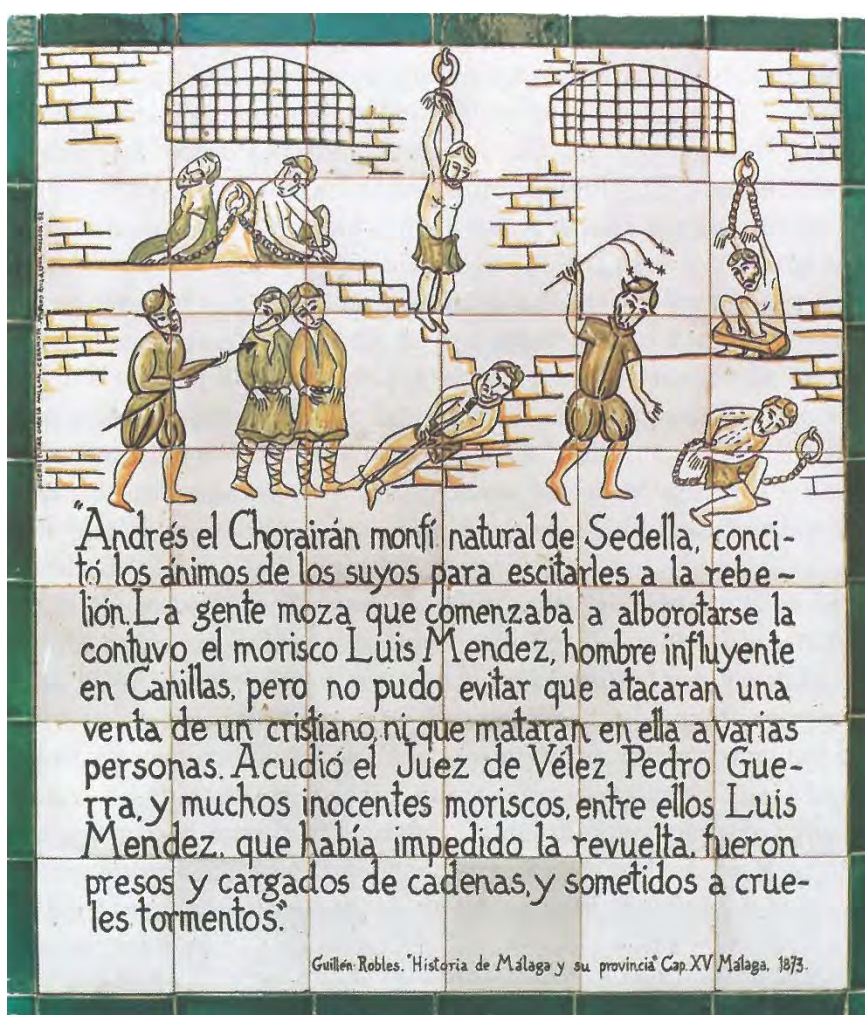 "Andrés el Chorairán monfí natural de Sedella, conci-
tó los ánimos de los suyos para escitarles a la rebe-
lión. La gente moza que comenzaba a alborotarse la
contuvo el morisco Luis Mendez, hombre influyente
en Canillas, pero no pudo evitar que atacaran una
venta de un cristiano, ni que mataran en ella a varias
personas. Acudió el Juez de Vélez Pedro Gue-
rra, y muchos inocentes moriscos, entre ellos Luis
Mendez, que había impedido la revuelta, fueron
presos y cargados de cadenas, y sometidos a crue-
les tormentos".
Guillén Robles. "Historia de Málaga y su provincia" Cap. XV Málaga, 1873.